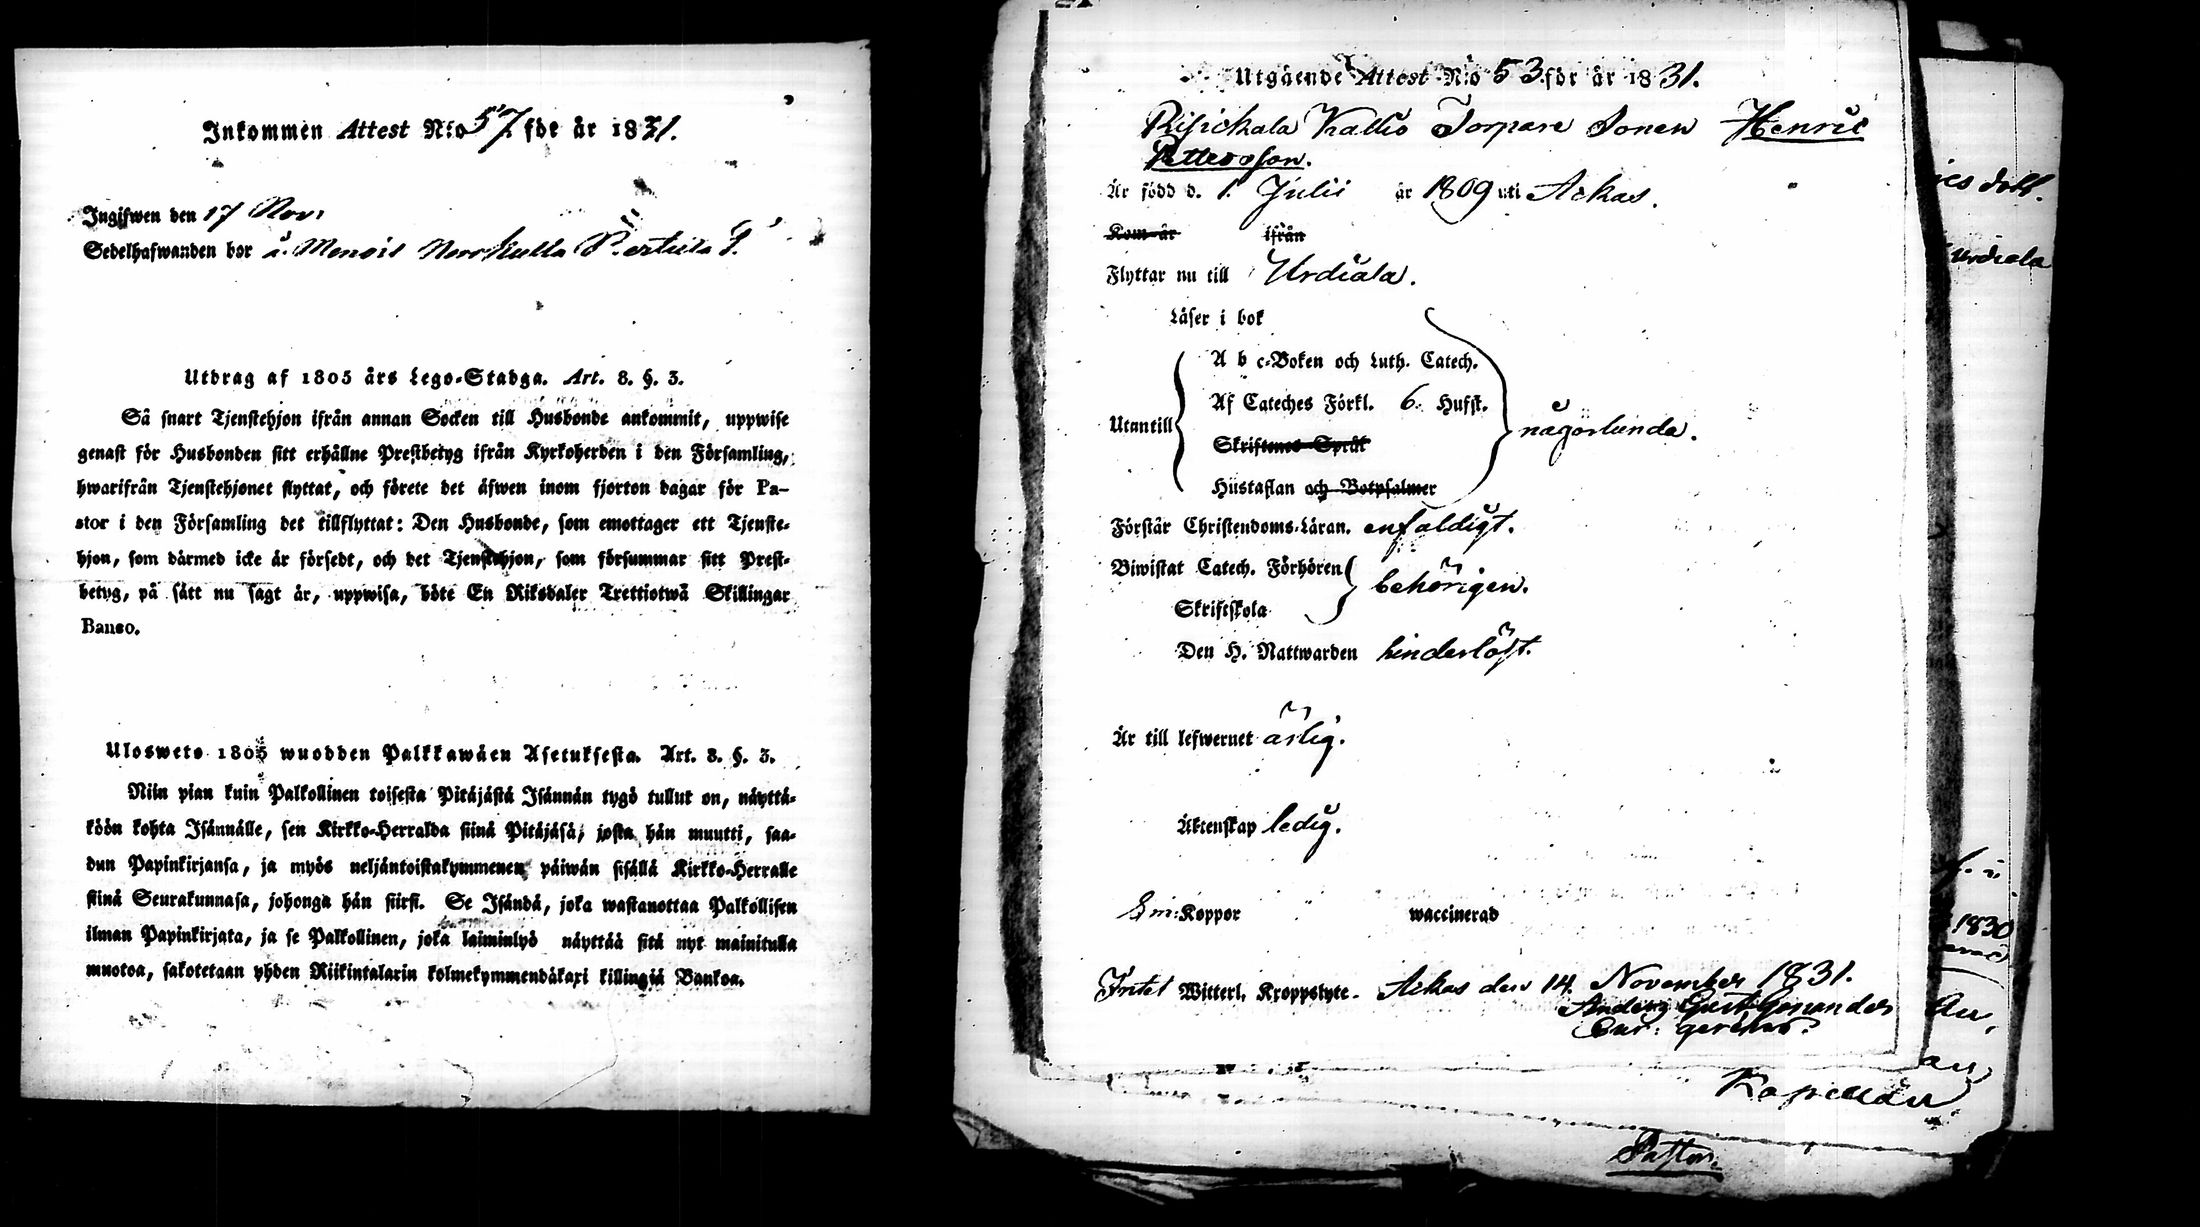 Inkommen Attest N:o 57. för år 1831.
Ingifwen den 17 Nov:
Sedelhafwanden bor å Menois Norrkulla
Utdrag af 1805 års Lego-Stadga. Art. 8. §. 3.
Så snart Tjenstehjon ifrån annan Socken till Husbonde ankommit, uppwise
genast för Husbonden sitt erhållne Prestbetyg ifrån Kyrkoherden i den Församling,
hwarifrån Tjenstehjonet flyttat, och förete det äfwen inom fjorton dagar för Pa-
stor i den Församling det tillflyttat: Den Husbonde, som emottager ett Tjenste-
hjon, som därmed icke är försedt, och det Tjenstehjon, som försummar sitt Prest-
betyg, på sätt nu sagt är, uppwisa, böte En Riksdaler Trettiotwå Skillingar
Banco.
Ulosweto 1805 wuodden Palkkawäen Asetuksesta. Art. 8. §. 3.
Niin pian kuin Palkollinen toisesta Pitäjästä Isännän tygö tullut on, näyttä-
köön kohta Isännälle, sen Kirkko-Herralda siinä Pitäjäsä, josta hän muutti, saa-
dun Papinkirjansa, ja myös neljäntoistakymmenen päiwän sisällä Kirkko-Herralle
siinä Seurakunnasa, johonga hän siirsi. Se Isändä, joka wastanottaa Palkollisen
ilman Papinkirjata, ja se Palkollinen, joka laiminlyö näyttää sitä nyt mainitulla
muotoa, sakotetaan yhden Riikintalarin kolmekymmendäkaxi killingiä Bankoa.
Utgående Attest N:o 53 för år 1831.
Kallio Torpare Sonen Henric
Pettersson.
Är född d. 1. Julii år 1809 uti Ackas.
Kom år ifrån
Flyttar nu till Urdiala.
Läser i bok
A b c-Boken och Luth. Catech.
Utantill Af Cateches Förkl. 6. Hufst. någorlunda.
Skriftenes Språk
Hustaflan och Botpsalmer
Förstår Christendoms-Läran. enfaldigt.
Biwistat Catech. Förhören behörigen.
Skriftskola
Den H. Nattwarden hinderlöst.
Är till lefwernet ärlig.
Äktenskap ledig.
Koppor waccinerad
Fritet Witterl. Kroppslyte. Ackas den 14. November 1831.
Anders Gust.
Cur: gerens.
Urdiala
1830
Kapellan
Pastor.